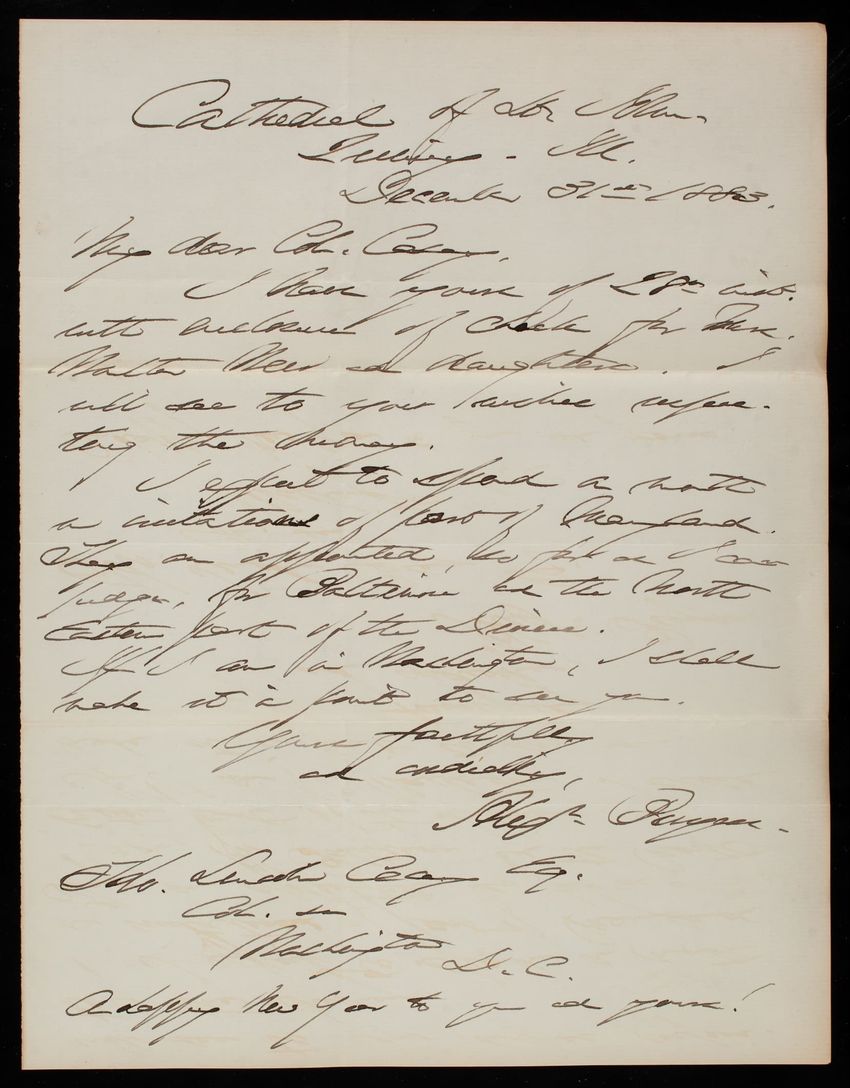 Cathedral of St. John.
Quincy. Ill.
December 31st 1883.
My dear Col. Casey,
I have yours of 28th inst.
with enclosure of check for Mrs.
Walter Weir and daughters. I
will see to your wishes respec-
ting the money.
I expect to spend a month
in visitations of part of Maryland.
They are appointed, so far as I can
judge, for Baltimore and the North
Eastern part of the Diocese.
If I am in Washington, I shall
make it a point to see you.
Yours faithfully
and cordially,
Alexr. Burgess.
Thos. Lincoln Casey Esq.
Col. &c
Washington D. C.
A happy New Year to you and yours!